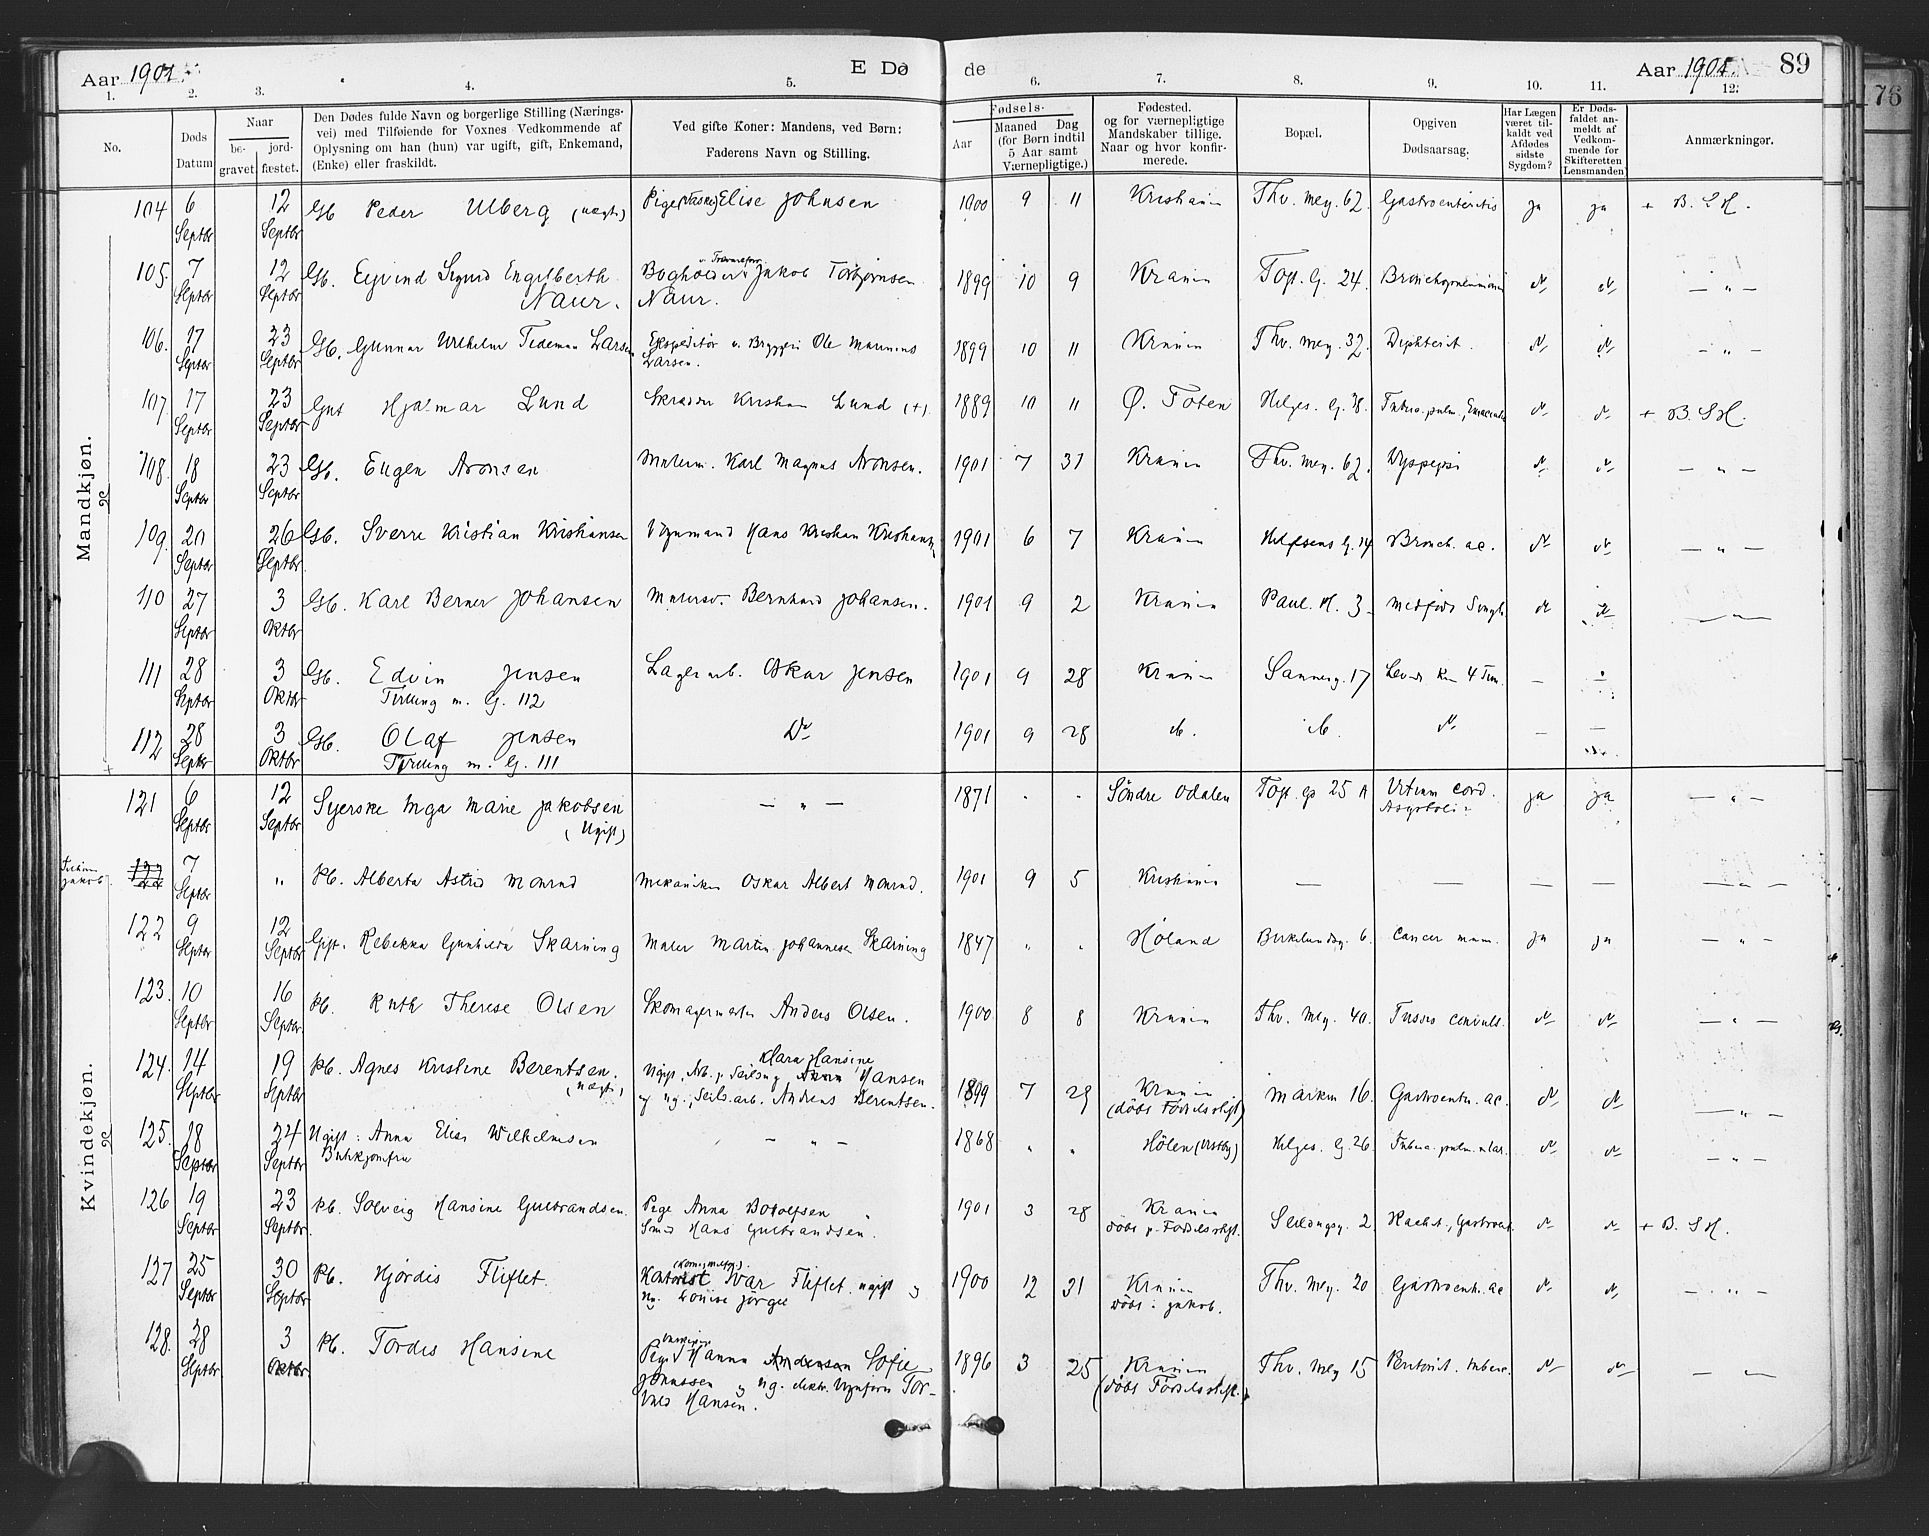 Aar 1901.
E Dø
de
Aar 1901.
89
76
1. 2. 3. 4. 5. 6. 7. 8. 9. 10. 11. 12.
No.
Døds Datum
Naar
be- gravet.
jord- fæstet.
Den Dødes fulde Navn og borgerlige Stilling (Nærings-
vei) med Tilføiende for Voxnes Vedkommende af
Oplysning om han (hun) var ugift, gift, Enkemand,
(Enke) eller fraskildt.
Ved gifte Koner: Mandens, ved Børn:
Faderens Navn og Stilling.
Fødsels-
Aar
Maaned Dag
(for Børn indtil
5 Aar samt
Værnepligtige.)
Fødested.
og for værnepligtige
Mandskaber tillige.
Naar og hvor konfir-
merede.
Bopæl.
Opgiven
Dødsaarsag.
Har Lægen
været til-
kaldt ved
Afdødes
sidste
Sygdom?
Er Døds-
faldet an-
meldt af
Vedkom-
mende for
Skifteretten
Lensmanden
Anmærkninger.
Mandkjøn.
104 6 Septbr 12 Septbr Gb Peder Ulberg (uægte) Pige Elise Johnsen 1900 9 11 Kristiania Thv. mey. 62. Gastroenteritis ja ja + B. S H.
105. 7 Septbr 12 Septbr Gb. Ejvind Sigurd Engelberth Naur. Bogholder Jakob Torbjørnsen Naur. 1899 10 9 Krania Toft. G. 24. Bronchopneumoni do do — " —
106. 17 Septbr 23 Septbr Gb. Gunnar Wilhelm Tideman Larsen Expeditør v. Bryggeri Ole Marinius Larsen. 1899 10 11 Krania Thv. mey. 32. Difterit. do do — " —
107. 17 Septbr 23 Septbr Gut Hjalmar Lund Skrædder Kristian Lund (+) 1889 10 11 Ø. Toten Helges. G. 38. do do + B. S H.
108. 18 Septbr 23 Septbr Gb. Eugen Aronsen Malerm. Karl Magnus Aronsen. 1901 7 31 Krania Thv. mey. 62. Dyspepsi do do — " —
109. 20 Septbr 26 Septbr. Gb. Sverre Kristian Kristiansen Vognmand Hans Kristian Kristiansen 1901 6 7 Krania G. 14 Bronch. ac. do do — " —
110 27 Septbr 3 Oktbr Gb. Karl Berner Johansen Malersv. Bernhard Johansen. 1901 9 2 Krania Paul. H. 3 Medfødt do do — " —
111 28 Septbr 3 Oktbr Gb. Edvin Jensen Tvilling m. G. 112 Lagerarb. Oskar Jensen 1901 9 28 Krania Sannerg. 17 Levede Kun 4 Tim. — —
112 28 Septbr 3 Oktbr Gb. Olaf Jensen Tvilling m. G. 111 Do 1901 9 28 do. do. do — —
Kvindekjøn.
121 6 Septbr 12 Septbr Syerske Inga Marie Jakobsen (Ugift) — " — 1871 " " Søndre Odalen Toft. G 25 A Vitium cord. Asystoli ja ja — " —
Jakob. 122 7 Septbr " Pb. Alberta Astrid Monrad Mekaniker Oskar Albert Monrad. 1901 9 5 Kristiania — — — — — " —
122 9 Septbr 12 Septbr Gift. Rebekka Gunhilda Skarning Maler Martin Johannesen Skarning 1847 " " Høland Birkelundsg. 6. Cancer mam. ja ja — " —
123. 10 Septbr 16 Septbr. Pb. Ruth Therese Olsen Skomagermester Anders Olsen. 1900 8 8 Krania Thv. Mey. 40. Tussis convuls. do do — " —
124. 14 Septbr 19 Septbr Pb. Agnes Kristine Berentsen. (uægte) Ugift, Arb. p. Seildug Klara Hansine Hansen og ug., Seilsarb. Andreas Berentsen. 1899 7 29 Krania (døbt Fødselsstift) Marken 16. Gastroent. ac. do do — " —
125. 18 Septbr 24 Septbr Ugift: Anna Elise Wilhelmsen Butikjomfru — " — 1868 " " Hølen (Vestby) Helges. G. 26. Tuberc. pulm. do do — " —
126 19 Septbr 23 Septbr. Pb. Solveig Hansine Gulbrandsen. Pige Anna Bodolfsen Smed Hans Gulbrandsen. 1901 3 28 Krania døbt p. Fødselsstift. Seildugsg. 2 Rachit., Gastroent. do do + B. S H.
127 25 Septbr 30 Septbr Pb. Hjørdis Fliflet. Kontorist Ivar Fliflet, ugift og ug. Louise 1900 12 31 Krania døbt i Jakob. Thv. Mey. 20 Gastroent. ac do do — " —
128. 28 Septbr 3 Oktbr Pb. Tordis Hansine Pige Hanna Sofie og ug. elektr. Torvald Hansen. 1896 3 25 Krania (døbt Fødselsstift.) Thv. Mey 15 Peritonit. tuberc. do do — " —